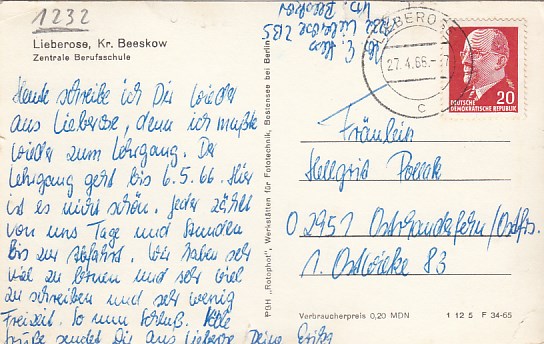 1232
Lieberose, Kr. Beeskow
Zentrale Berufsschule
Heute schreibe ich Dir wieder
aus Lieberose, denn ich mußte
wieder zum Lehrgang. Der
Lehrgang geht bis 6.5.66. Hier
ist es nicht schön. Jeder zählt
von uns Tage und Stunden
bis zur Abfahrt. Wir haben sehr
viel zu lernen und sehr viel
zu schreiben und sehr wenig
Freizeit. So nun Schluß. Viele
Grüße sendet Dir aus Lieberose Deine
PGH „Rotophot", Werkstätten für Fototechnik, Bestensee bei Berlin
Lieberose
Beeskow
LIEBEROSE
27.4.66.
c
DEUTSCHE
DEMOKRATISCHE REPUBLIK
20
Fräulein
Hellgrid
O 2951 Ostrhauderfehn/Ostfrs.
1. Ostwieke 83
Verbraucherpreis 0,20 MDN
1 12 5 F 34-65